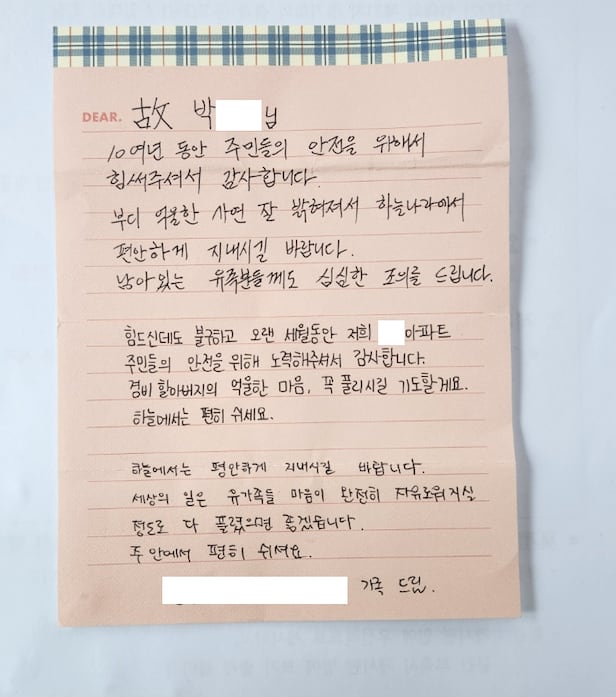 DEAR. 故 박 님
10여년 동안 주민들의 안전을 위해서
힘써주셔서 감사합니다.
부디 억울한 사연 잘 밝혀져서 하늘나라에서
편안하게 지내시길 바랍니다.
남아있는 유족분들께도 심심한 조의를 드립니다.
힘드신데도 불구하고 오랜 세월동안 저희 아파트
주민들의 안전을 위해 노력해주셔서 감사합니다.
경비 할아버지의 억울한 마음, 꼭 풀리시길 기도할게요.
하늘에서는 편히 쉬세요.
하늘에서는 평안하게 지내시길 바랍니다.
세상의 일은 유가족들 마음이 완전히 자유로워지실
정도로 다 풀렸으면 좋겠습니다.
주 안에서 편히 쉬셔요.
가족 드림.